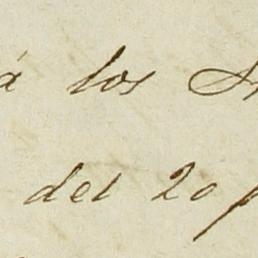 á los
del 20